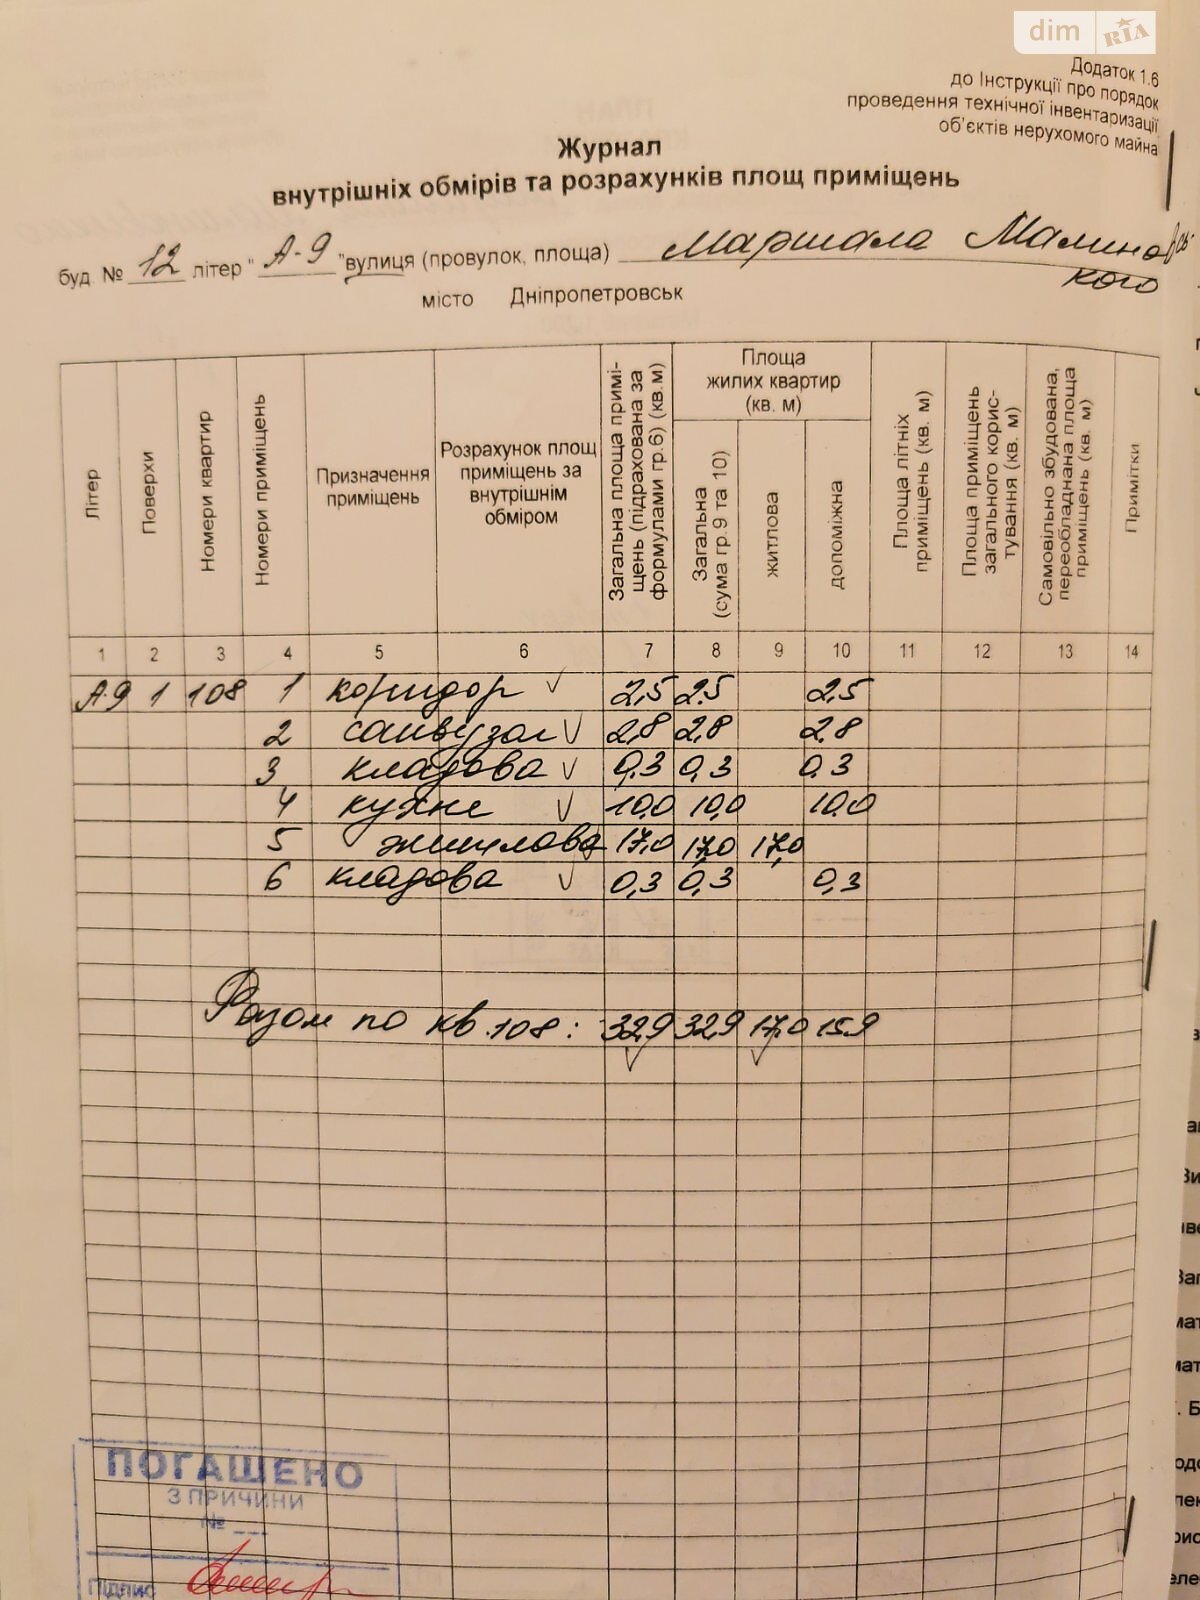 dim RIA
Додаток 1.6
до Інструкції про порядок
проведення технічної інвентаризації
об'єктів нерухомого майна
Журнал
внутрішніх обмірів та розрахунків площ приміщень
буд. № 12 літер "А-9" вулиця (провулок, площа) Маршала Малиновсь-
кого
місто Дніпропетровськ
Літер Поверхи Номери квартир Номери приміщень Призначення приміщень Розрахунок площ приміщень за внутрішнім обміром Загальна площа примі-щень (підрахована за формулами гр.6) (кв.м) Площа жилих квартир (кв. м) Загальна (сума гр.9 та 10) житлова допоміжна Площа літніх приміщень (кв. м) Площа приміщень загального корис-тування (кв. м) Самовільно збудована, переобладнана площа приміщень (кв. м) Примітки
1 2 3 4 5 6 7 8 9 10 11 12 13 14
А-9 1 108 1 коридор 2,5 2,5 2,5
2 санвузол 2,8 2,8 2,8
3 кладова 0,3 0,3 0,3
4 кухня 10,0 10,0 10,0
5 житлова 17,0 17,0 17,0
6 кладова 0,3 0,3 0,3
Разом по кв. 108: 32,9 32,9 17,0 15,9
ПОГАШЕНО
З ПРИЧИНИ
№
Підпис